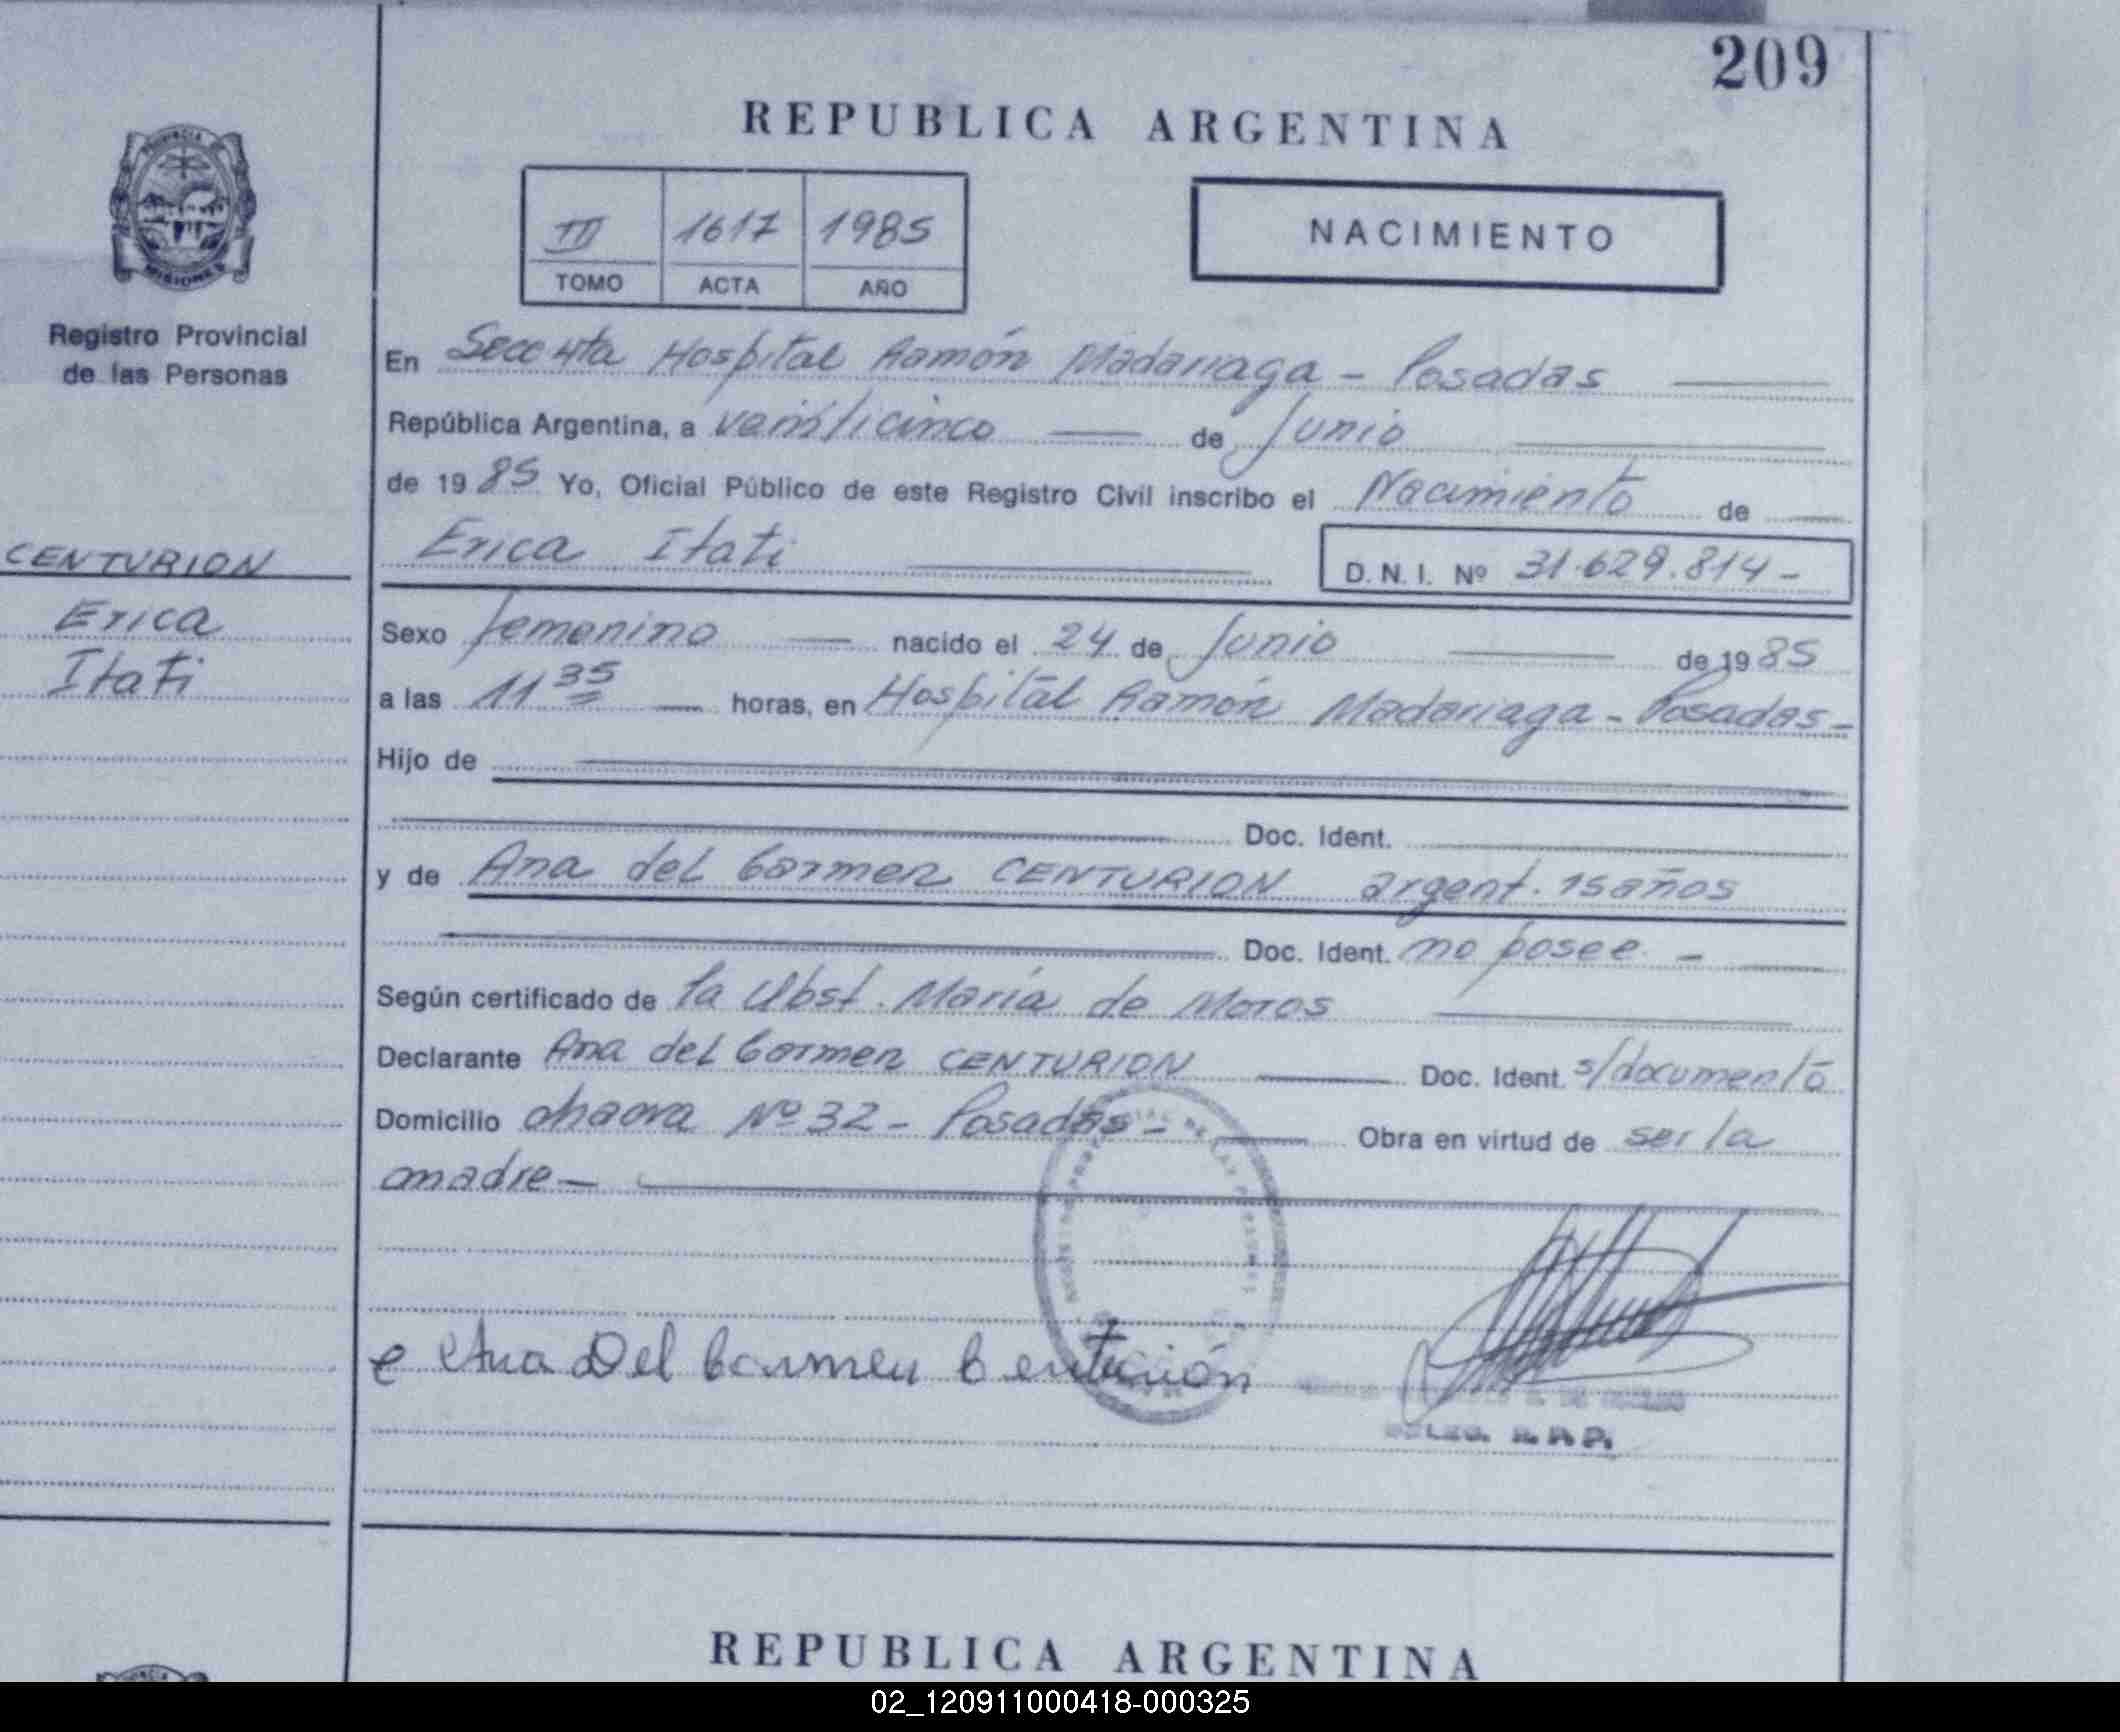 209
REPUBLICA ARGENTINA
III 1617 1985
TOMO ACTA AÑO
NACIMIENTO
PROVINCIA
MISIONES
Registro Provincial
de las Personas
CENTURION
Erica
Itati
En Secc 4ta Hospital Ramón Madariaga - Posadas
República Argentina, a veinticinco de Junio
de 1985 Yo, Oficial Público de este Registro Civil inscribo el Nacimiento de
Erica Itati D.N.I. Nº 31.629.814-
Sexo femenino nacido el 24 de Junio de 1985
a las 11 35 horas, en Hospital Ramón Madariaga - Posadas -
Hijo de
Doc. Ident.
y de Ana del Carmen CENTURION argent. 15 años
Doc. Ident. no posee. -
Según certificado de la Obst. María de Moros
Declarante Ana del Carmen CENTURION Doc. Ident. s/documento
Domicilio chacra Nº 32 - Posadas - Obra en virtud de ser la
madre -
Ana Del Carmen Centurión
R.P.P.
REPUBLICA ARGENTINA
02_120911000418-000325